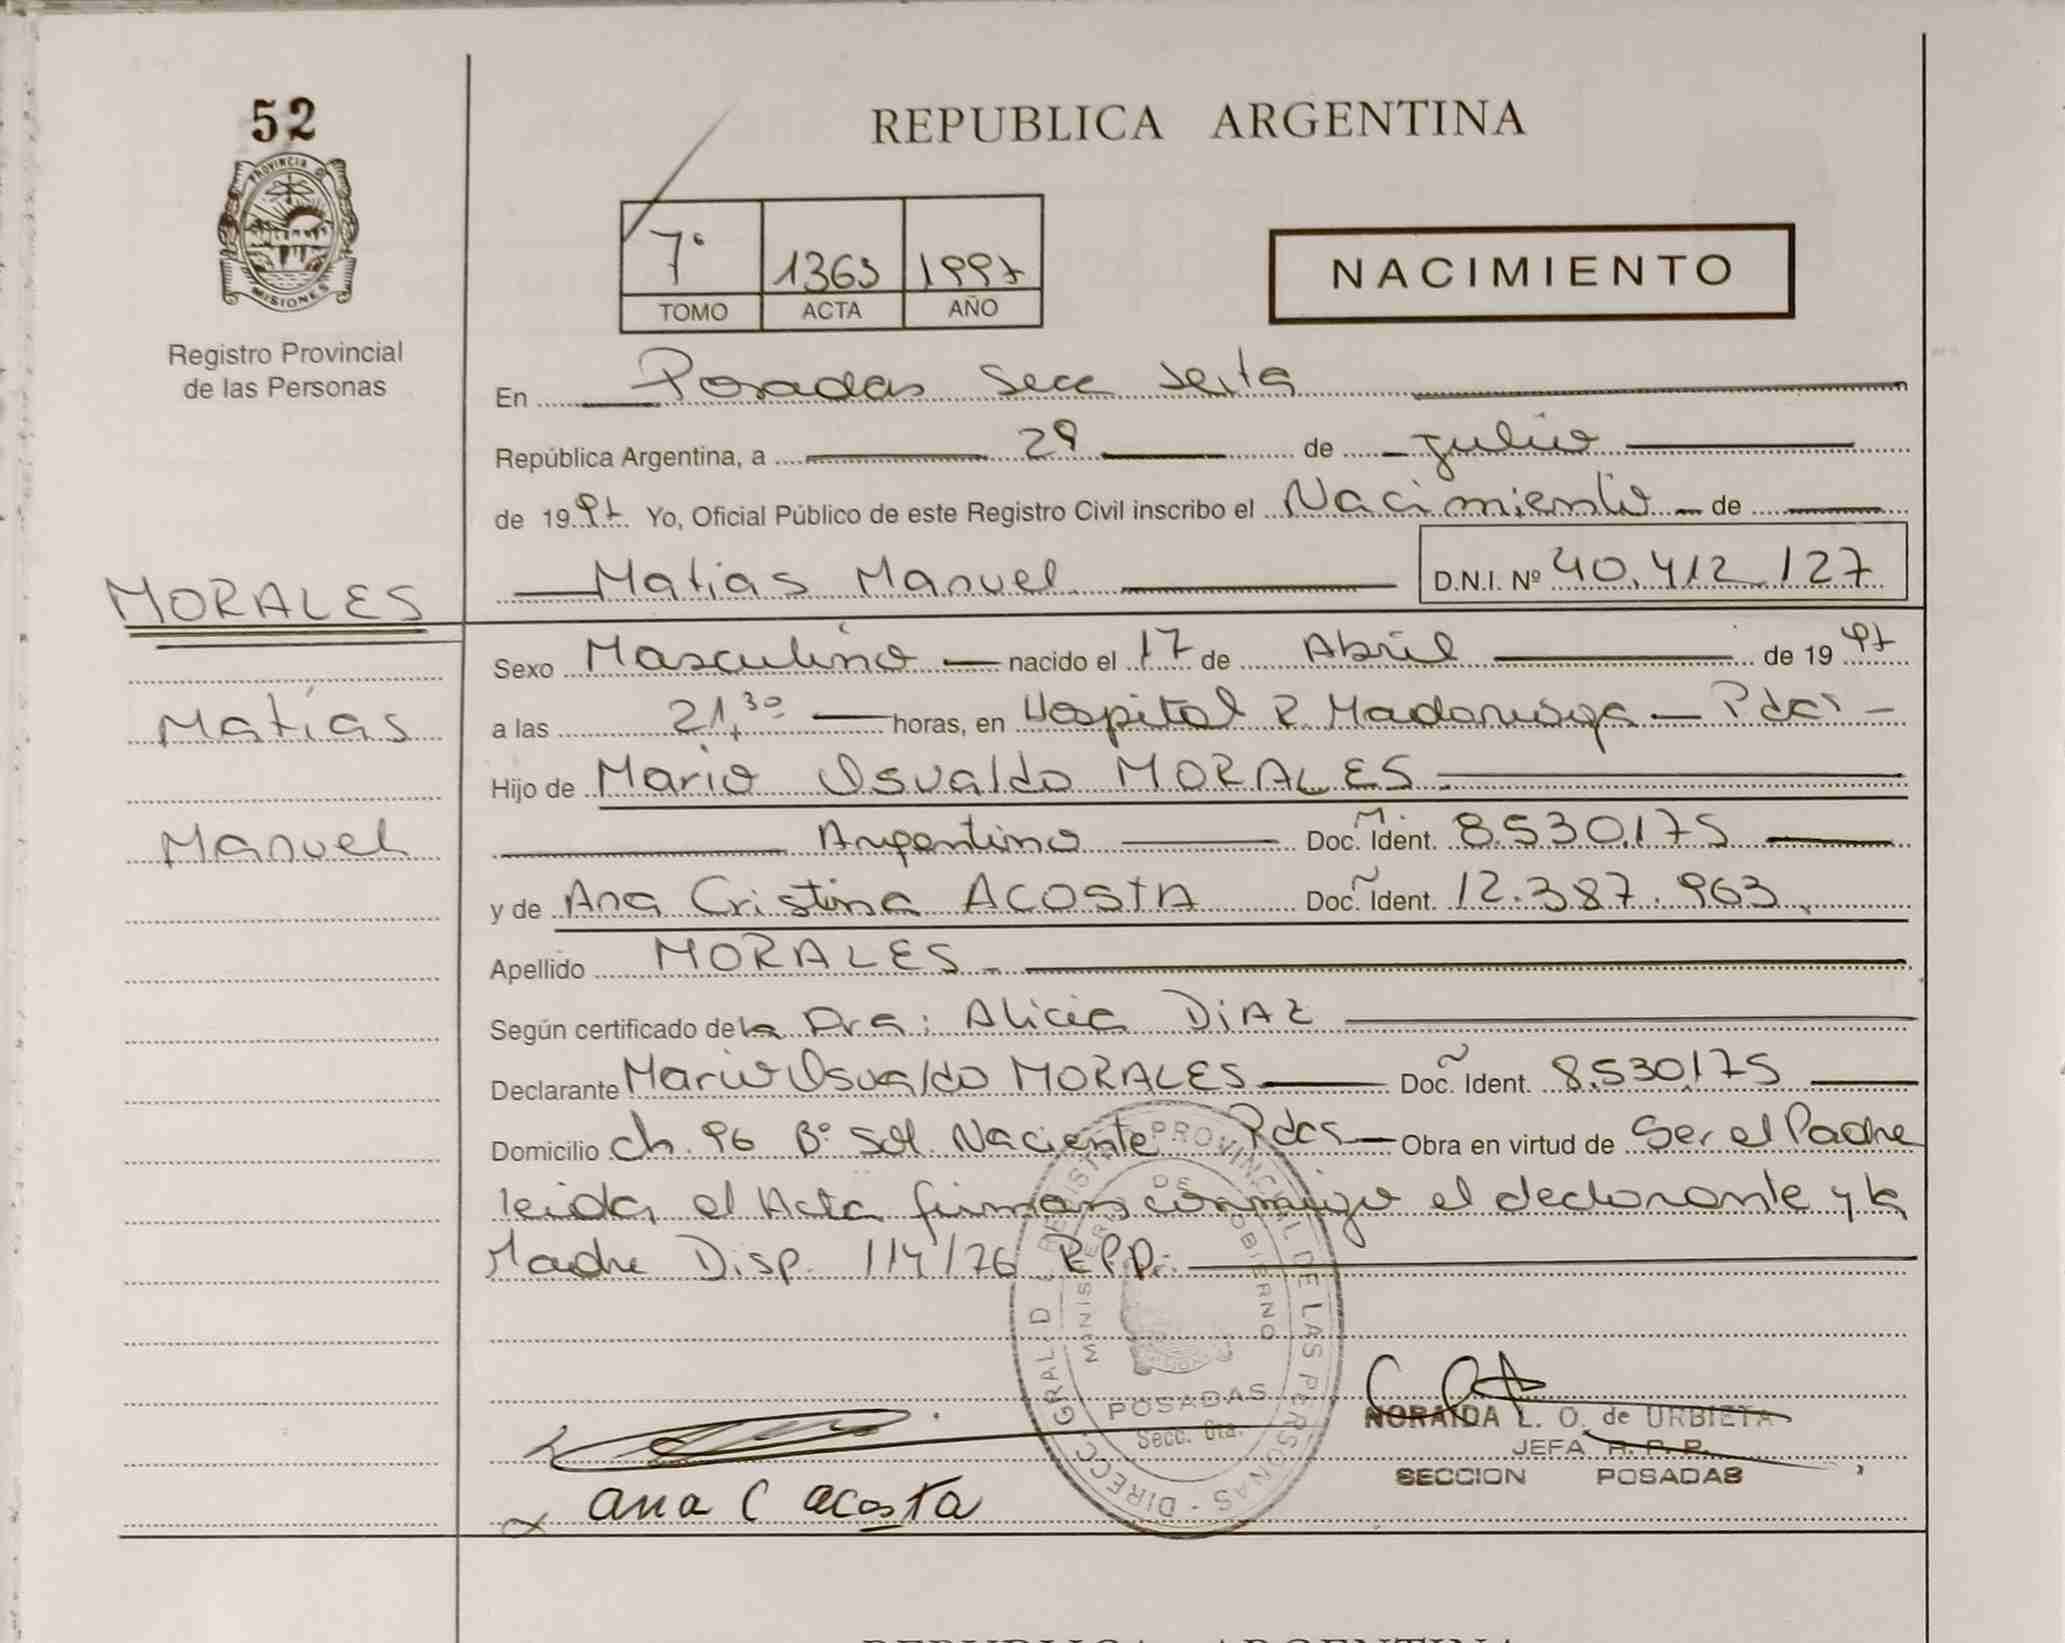 52
PROVINCIA DE MISIONES
Registro Provincial
de las Personas
MORALES
Matías
Manuel
REPUBLICA ARGENTINA
7° 1363 1997
TOMO ACTA AÑO
NACIMIENTO
En Posadas Secc Sexta
República Argentina, a 29 de Julio
de 1997 Yo, Oficial Público de este Registro Civil inscribo el Nacimiento de
Matias Manuel D.N.I. Nº 40.412.127
Sexo Masculino nacido el 17 de Abril de 1997
a las 21,30 horas, en Hospital R Madariaga - Pdas -
Hijo de Mario Osvaldo MORALES
Argentino Doc. M. Ident. 8.530.175
y de Ana Cristina ACOSTA Doc. Ident. 12.387.963
Apellido MORALES
Según certificado de la Dra: Alicia DiAZ
Declarante Mario Osvaldo MORALES Doc. Ident. 8.530.175
Domicilio Ch. 96 B° Sol Naciente Pdas Obra en virtud de Ser el Padre
leida el Acta firman conmigo el declarante y la
Madre Disp. 114/76 RPP.
DIRECC. GRAL D REGISTRO PROVINCIAL DE LAS PERSONAS
MINISTERIO DE GOBIERNO
POSADAS
Secc. 6ta.
NORAIDA L. O. de URBIETA
JEFA R. P. P.
SECCION POSADAS
ana C acosta
REPUBLICA ARGENTINA